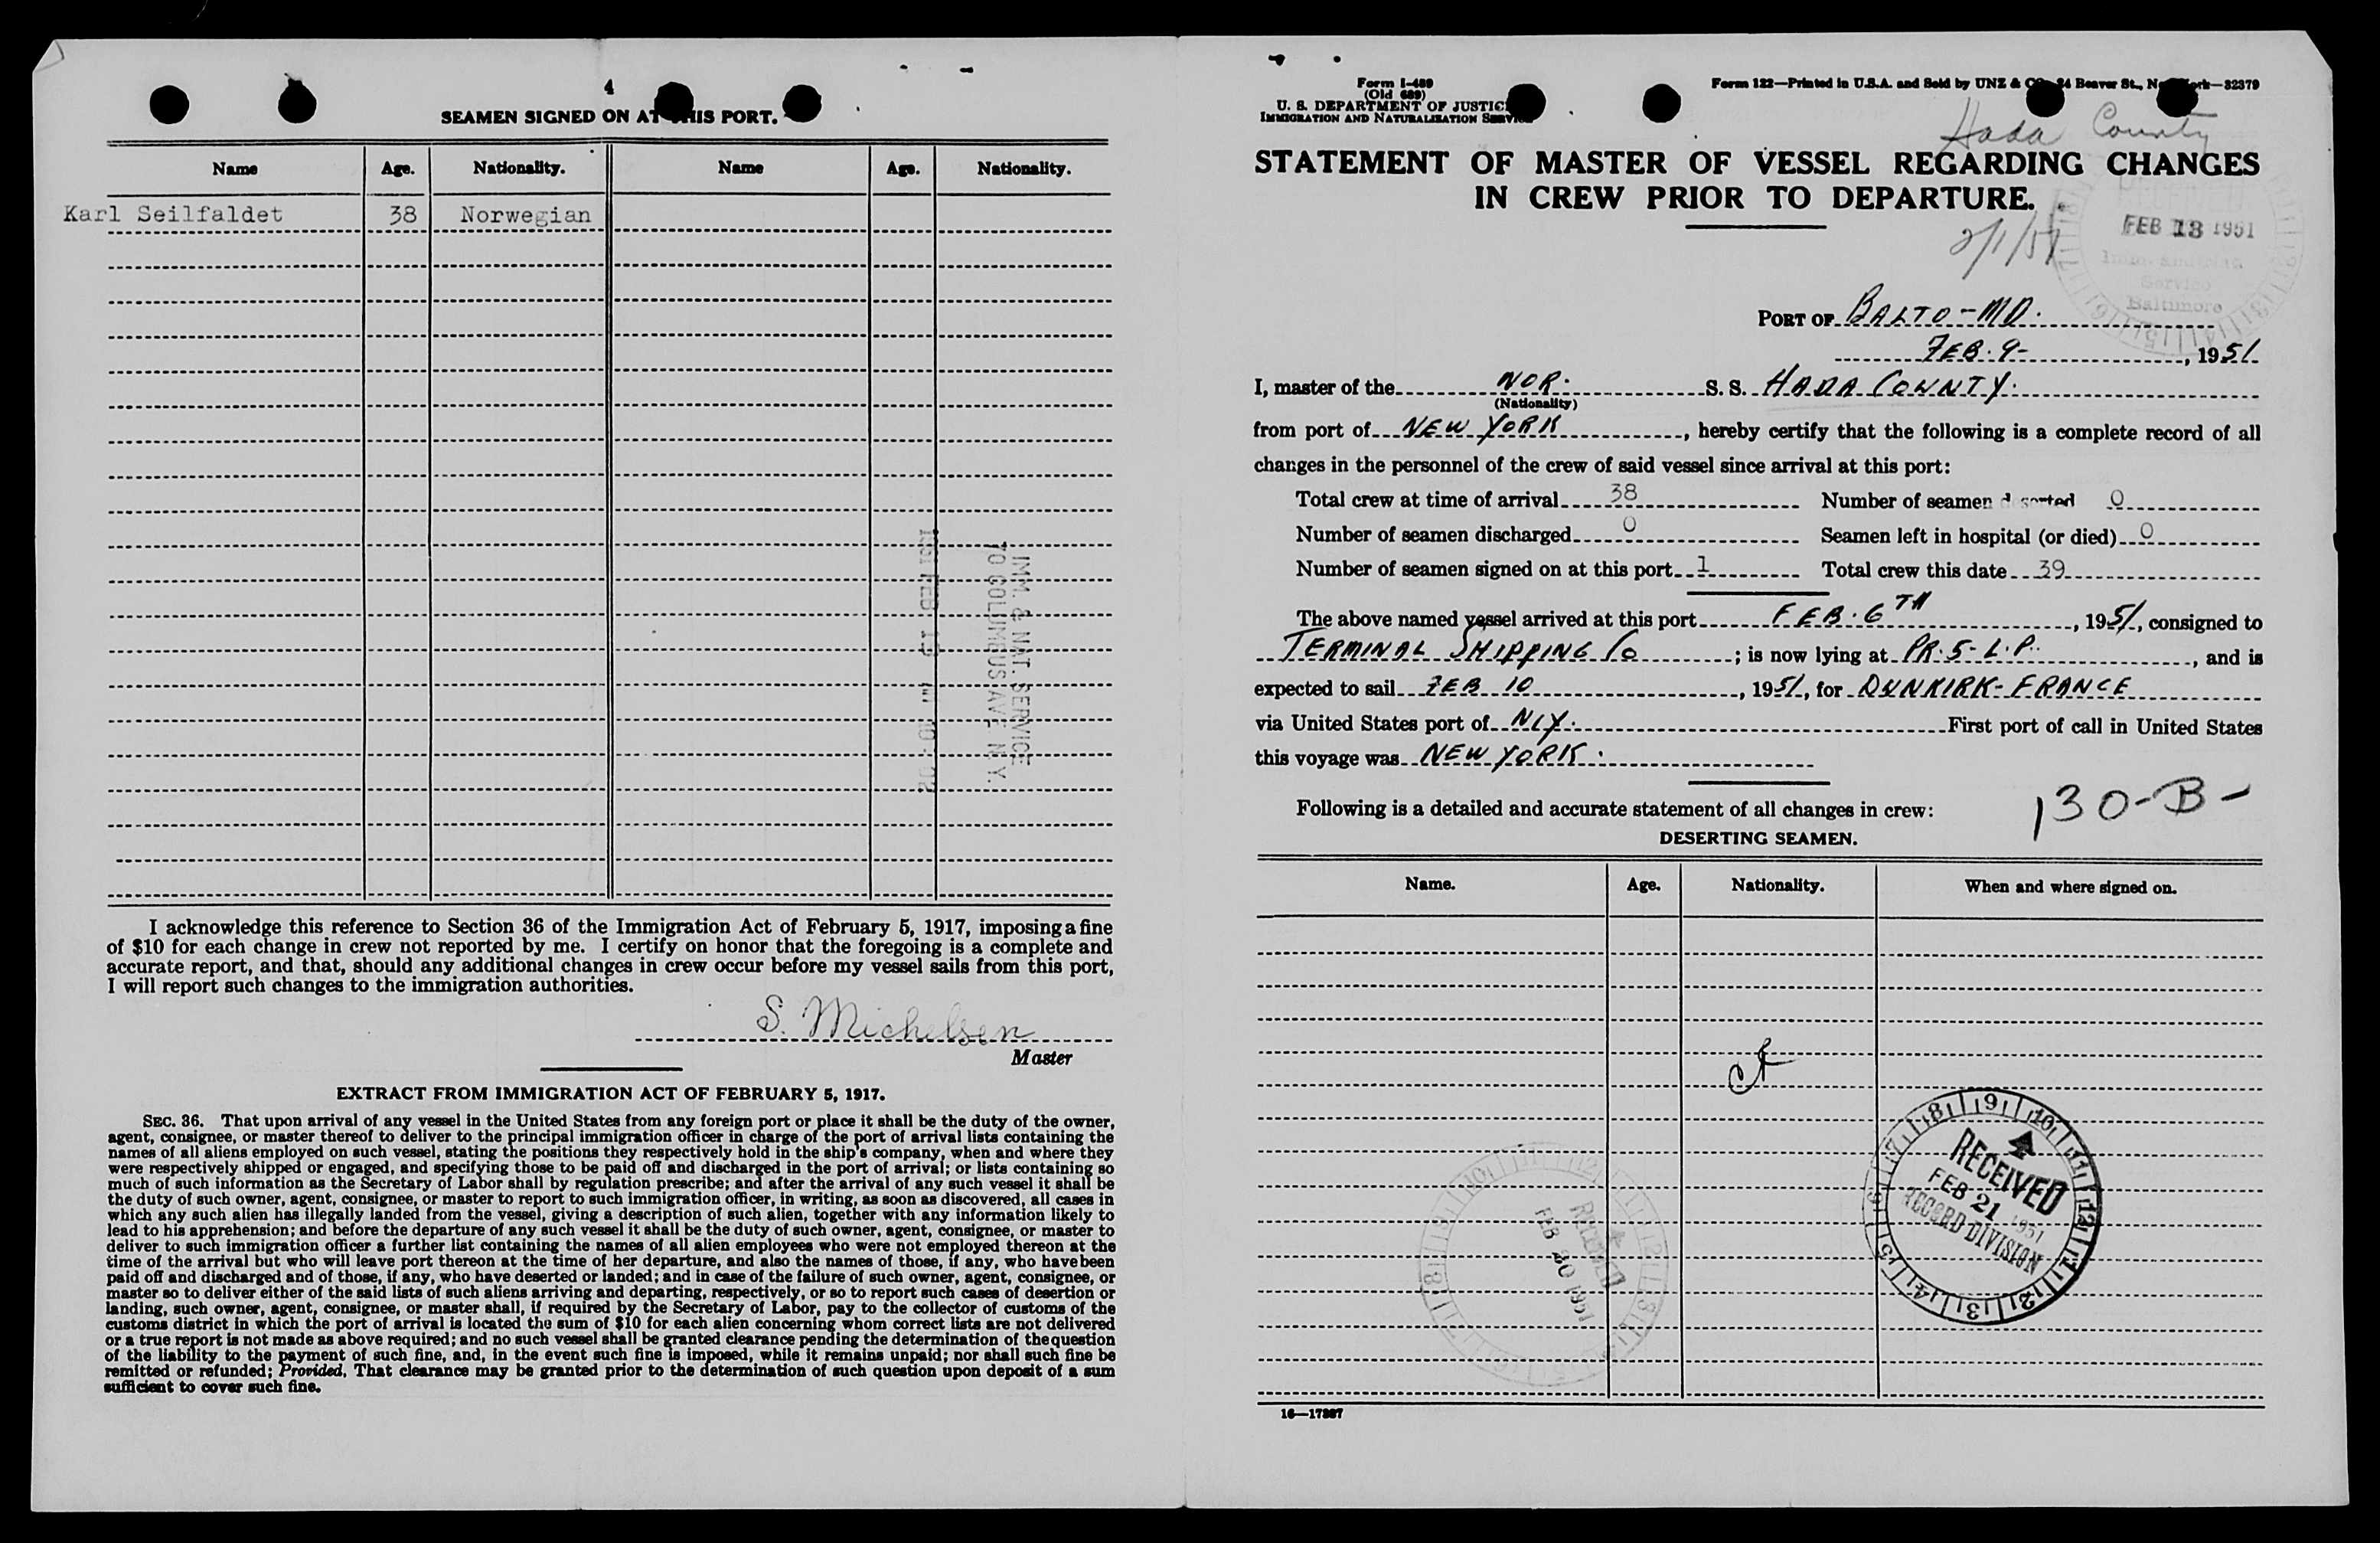 4
SEAMEN SIGNED ON AT THIS PORT.
Name Age. Nationality. Name Age. Nationality.
Karl Seilfaldet 38 Norwegian
IMM. & NAT. SERVICE
70 COLUMBUS AVE N.Y.
1951 FEB 19
I acknowledge this reference to Section 36 of the Immigration Act of February 5, 1917, imposing a fine
of $10 for each change in crew not reported by me. I certify on honor that the foregoing is a complete and
accurate report, and that, should any additional changes in crew occur before my vessel sails from this port,
I will report such changes to the immigration authorities.
S. Michelsen
Master
EXTRACT FROM IMMIGRATION ACT OF FEBRUARY 5, 1917.
SEC. 36. That upon arrival of any vessel in the United States from any foreign port or place it shall be the duty of the owner,
agent, consignee, or master thereof to deliver to the principal immigration officer in charge of the port of arrival lists containing the
names of all aliens employed on such vessel, stating the positions they respectively hold in the ship's company, when and where they
were respectively shipped or engaged, and specifying those to be paid off and discharged in the port of arrival; or lists containing so
much of such information as the Secretary of Labor shall by regulation prescribe; and after the arrival of any such vessel it shall be
the duty of such owner, agent, consignee, or master to report to such immigration officer, in writing, as soon as discovered, all cases in
which any such alien has illegally landed from the vessel, giving a description of such alien, together with any information likely to
lead to his apprehension; and before the departure of any such vessel it shall be the duty of such owner, agent, consignee, or master to
deliver to such immigration officer a further list containing the names of all alien employees who were not employed thereon at the
time of the arrival but who will leave port thereon at the time of her departure, and also the names of those, if any, who have been
paid off and discharged and of those, if any, who have deserted or landed; and in case of the failure of such owner, agent, consignee, or
master so to deliver either of the said lists of such aliens arriving and departing, respectively, or so to report such cases of desertion or
landing, such owner, agent, consignee, or master shall, if required by the Secretary of Labor, pay to the collector of customs of the
customs district in which the port of arrival is located the sum of $10 for each alien concerning whom correct lists are not delivered
or a true report is not made as above required; and no such vessel shall be granted clearance pending the determination of the question
of the liability to the payment of such fine, and, in the event such fine is imposed, while it remains unpaid; nor shall such fine be
remitted or refunded; Provided, That clearance may be granted prior to the determination of such question upon deposit of a sum
sufficient to cover such fine.
Form I-489
(Old 689)
U. S. DEPARTMENT OF JUSTICE
IMMIGRATION AND NATURALIZATION SERVICE
Form 122—Printed in U.S.A. and Sold by UNZ & CO., 24 Beaver St., New York—32379
Hada County
STATEMENT OF MASTER OF VESSEL REGARDING CHANGES
IN CREW PRIOR TO DEPARTURE.
2/1/51
FEB 13 1951
Service
Baltimore
PORT OF BALTO-MD.
FEB. 9-, 1951
I, master of the NOR. S. S. HADA COUNTY.
(Nationality)
from port of NEW YORK, hereby certify that the following is a complete record of all
changes in the personnel of the crew of said vessel since arrival at this port:
Total crew at time of arrival 38 Number of seamen deserted 0
Number of seamen discharged 0 Seamen left in hospital (or died) 0
Number of seamen signed on at this port 1 Total crew this date 39
The above named vessel arrived at this port FEB. 6TH, 1951, consigned to
TERMINAL SHIPPING Co; is now lying at PR. 5-L.P., and is
expected to sail FEB 10, 1951, for DUNKIRK-FRANCE
via United States port of N.Y. First port of call in United States
this voyage was NEW YORK.
Following is a detailed and accurate statement of all changes in crew:
130-B-
DESERTING SEAMEN.
Name. Age. Nationality. When and where signed on.
RECEIVED
FEB 21 1951
RECORD DIVISION
RECEIVED
FEB 20 1951
16—17387